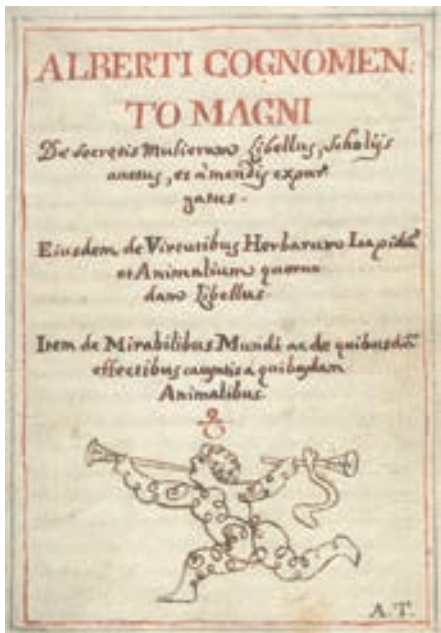 ALBERTI COGNOMEN:
TO MAGNI
De secretis Mulierum Libellus, Scholijs
auctus, et à mendis expur
gatus.
Eiusdem de Virtutibus Herbarum Lapidũ
et Animalium quorun
dam Libellus.
Item de Mirabilibus Mundi ac de quibusdã
effectibus causatis a quibusdam
Animalibus.
A.T.